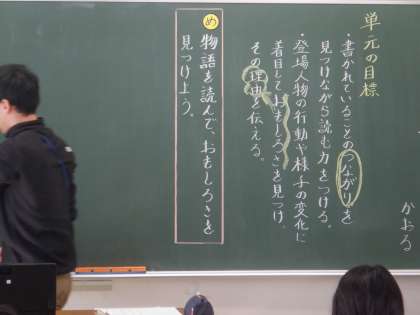 単元の目標
・書かれていることのつながりを
見つけながら読む力をつける。
・登場人物の行動や様子の変化に
着目しておもしろさを見つけ、
その理由を伝える。
かおる
め 物語を読んで、おもしろさを
見つけよう。